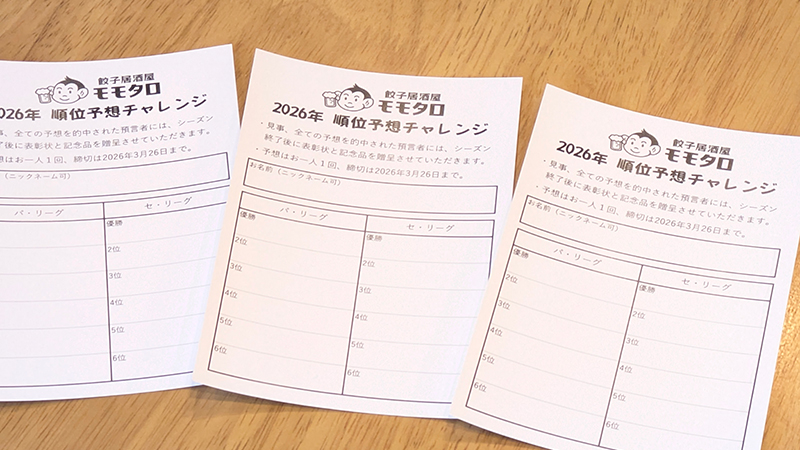 餃子居酒屋
モモタロ
2026年 順位予想チャレンジ
見事、全ての予想を的中された預言者には、シーズン
終了後に表彰状と記念品を贈呈させていただきます。
予想はお一人1回、締切は2026年3月26日まで。
お名前（ニックネーム可）
パ・リーグ
セ・リーグ
優勝
2位
3位
4位
5位
6位
餃子居酒屋
モモタロ
2026年 順位予想チャレンジ
・見事、全ての予想を的中された預言者には、シーズン
終了後に表彰状と記念品を贈呈させていただきます。
・予想はお一人1回、締切は2026年3月26日まで。
お名前（ニックネーム可）
パ・リーグ
セ・リーグ
優勝 優勝
2位 2位
3位 3位
4位 4位
5位 5位
6位 6位
餃子居酒屋
モモタロ
2026年 順位予想チャレンジ
・見事、全ての予想を的中された預言者には、シーズン
終了後に表彰状と記念品を贈呈させていただきます。
・予想はお一人1回、締切は2026年3月26日まで。
お名前（ニックネーム可）
パ・リーグ
セ・リーグ
優勝 優勝
2位 2位
3位 3位
4位 4位
5位 5位
6位 6位